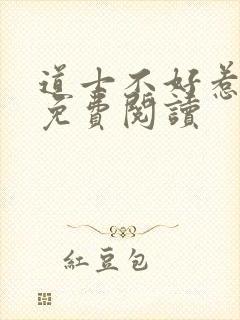 道士不好惹
免費閱讀
紅豆包